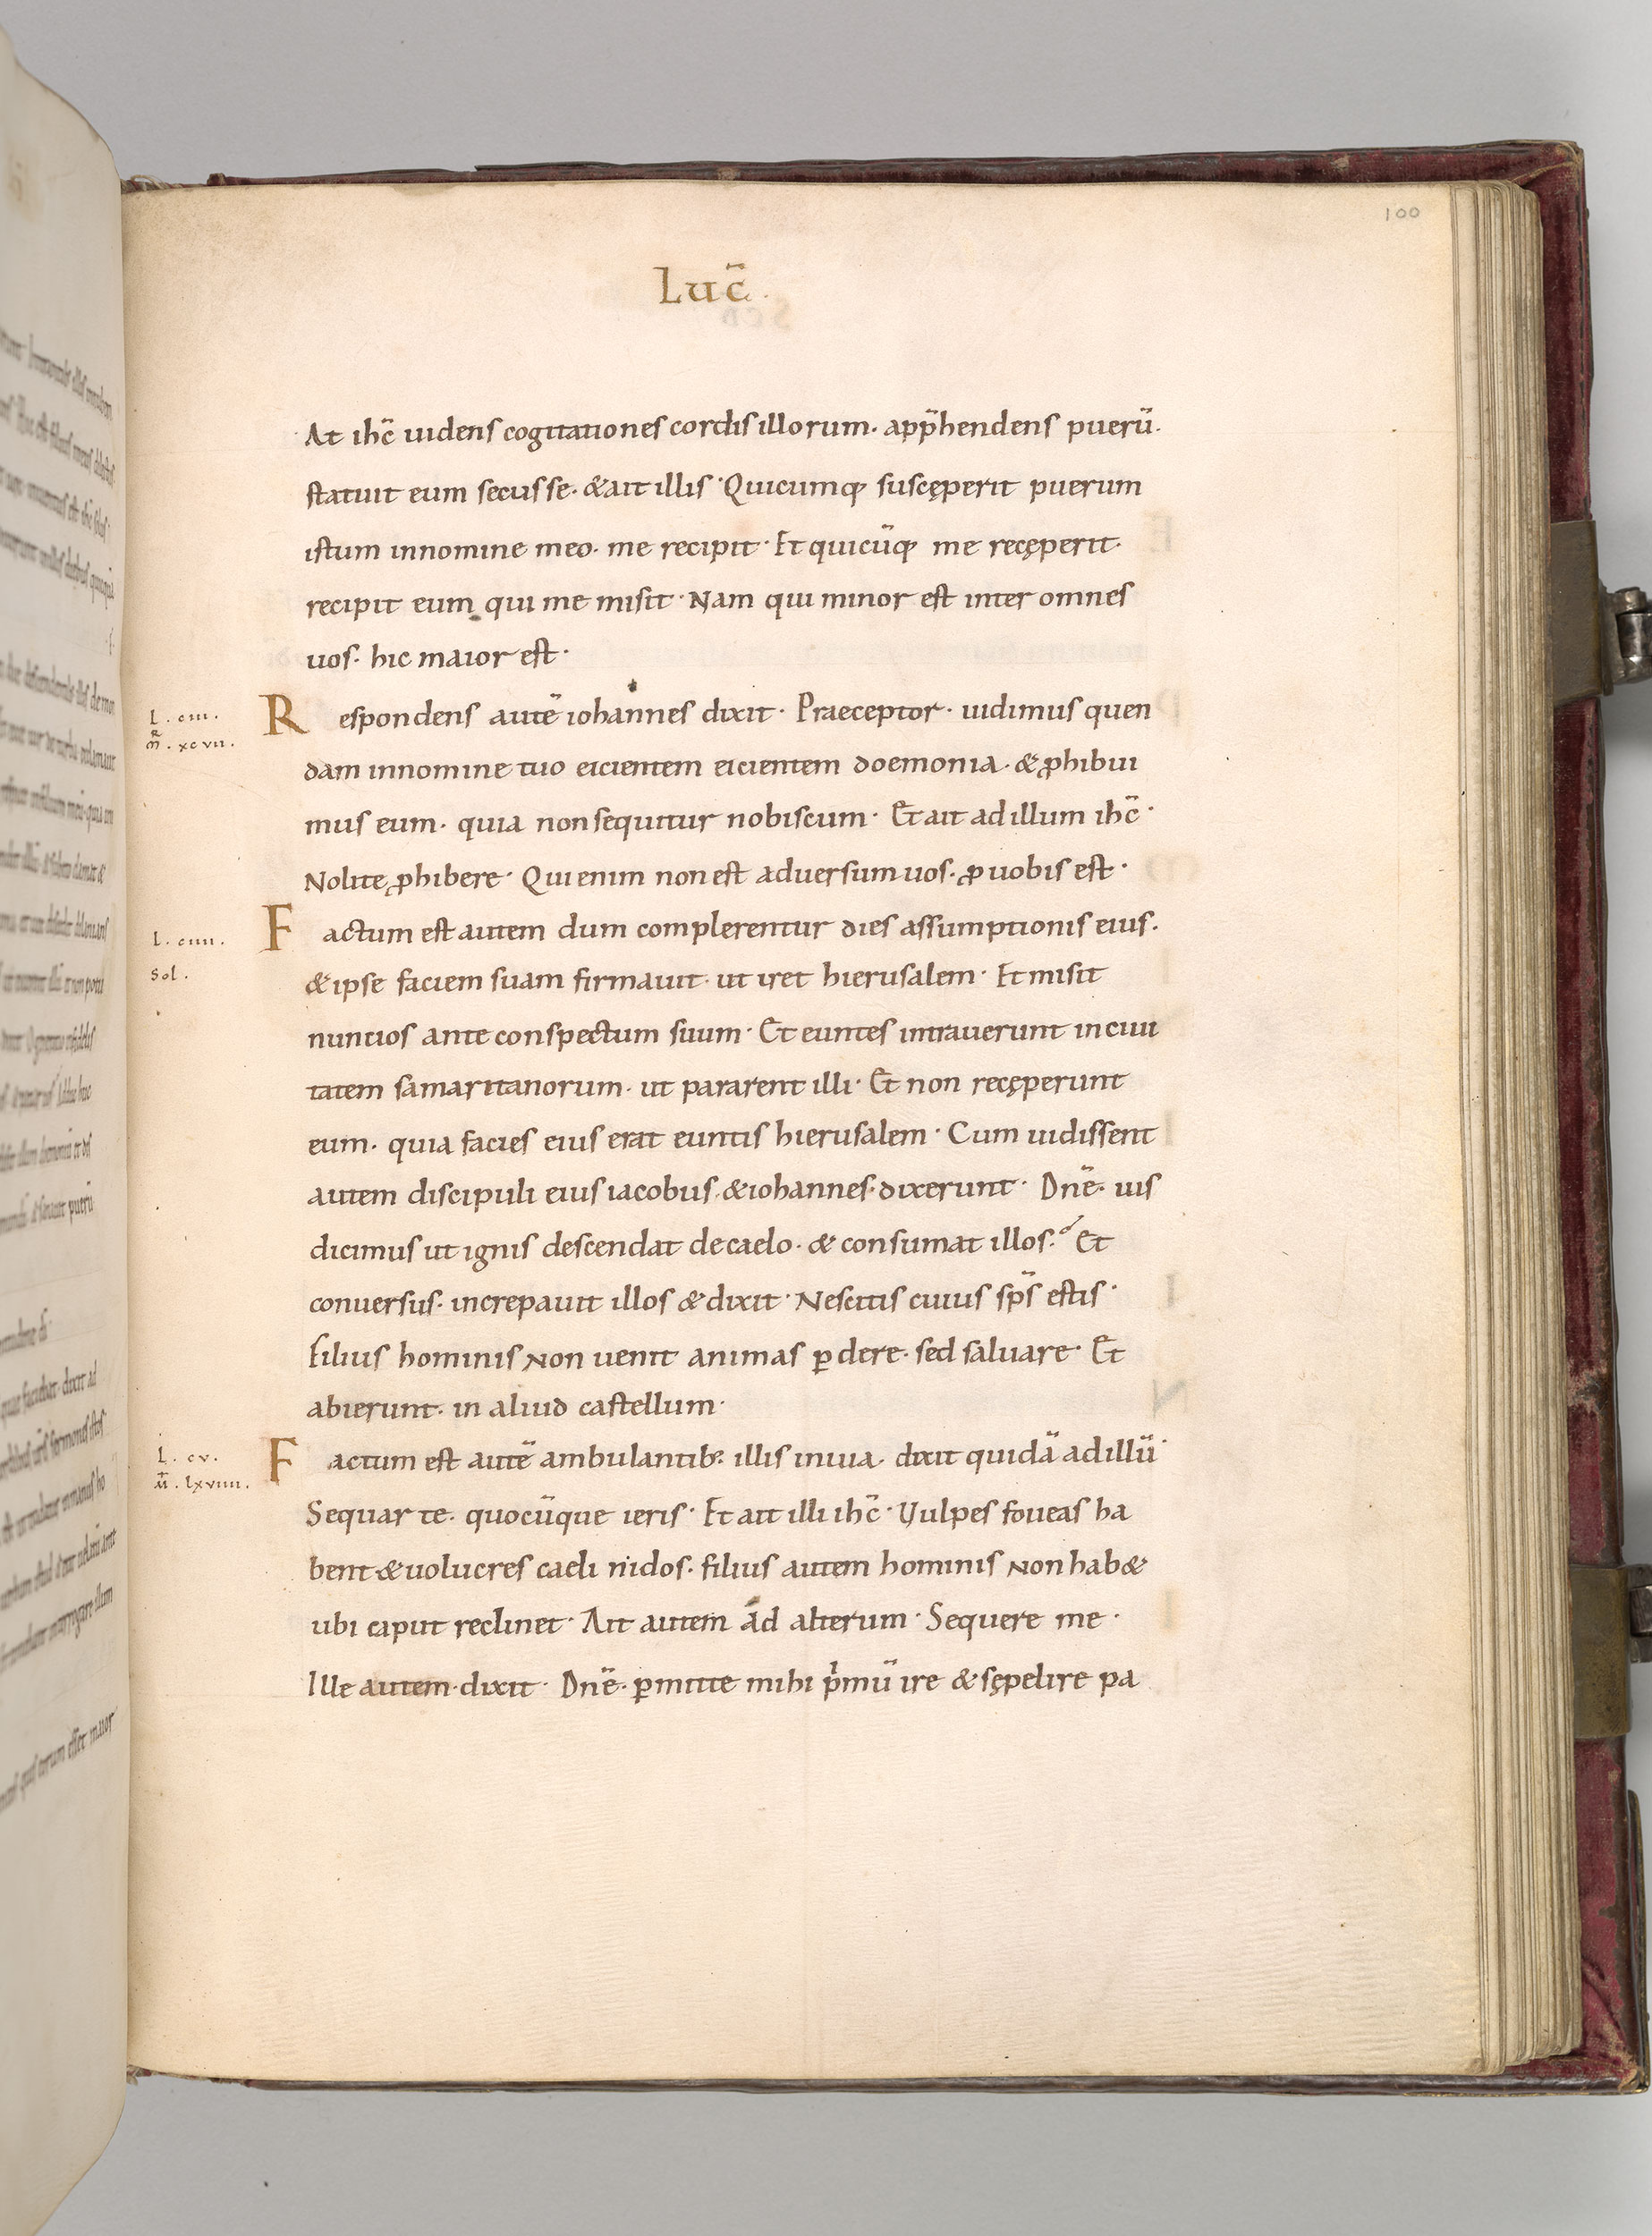 100
Luc̄.
At ihc̄ uidens cogitationes cordis illorum. app̄hendens puerū.
statuit eum secus se. & ait illis· Quicumq; suscęperit puerum
istum in nomine meo. me recipit· Et quicūq; me recęperit.
recipit eum qui me misit· Nam qui minor est inter omnes
uos. hic maior est·
L. ciii.
R
m̄. xcvii.
Respondens autē iohannes dixit· Praeceptor· uidimus quen
dam in nomine tuo eicientem eicientem doemonia. & ꝓhibui
mus eum. quia non sequitur nobiscum· Et ait ad illum ihc̄·
Nolite ꝓhibere· Qui enim non est aduersum uos. ꝓ uobis est·
L. ciiii.
Sol.
Factum est autem dum complerentur dies assumptionis eius.
& ipse faciem suam firmauit. ut iret hierusalem· Et misit
nuntios ante conspectum suum· Et euntes intrauerunt in ciui
tatem samaritanorum. ut pararent illi· Et non recęperunt
eum. quia facies eius erat euntis hierusalem· Cum uidissent
autem discipuli eius iacobus. & iohannes. dixerunt· Dnē. uis
dicimus ut ignis descendat de caelo. & consumat illos? Et
conuersus. increpauit illos & dixit· Nescitis cuius sp̄s estis·
Filius hominis non uenit animas ꝑdere. sed saluare· Et
abierunt. in aliud castellum·
L. cv.
M̄. lxviiii.
Factum est autē ambulantib; illis in uia. dixit quidā ad illū·
Sequar te. quocūque ieris· Et ait illi ihc̄· Uulpes foueas ha
bent & uolucres caeli nidos. filius autem hominis non hab&
ubi caput reclinet· Ait autem ad alterum· Sequere me·
Ille autem. dixit· Dnē. ꝑmitte mihi pͥmū ire & sępelire pa